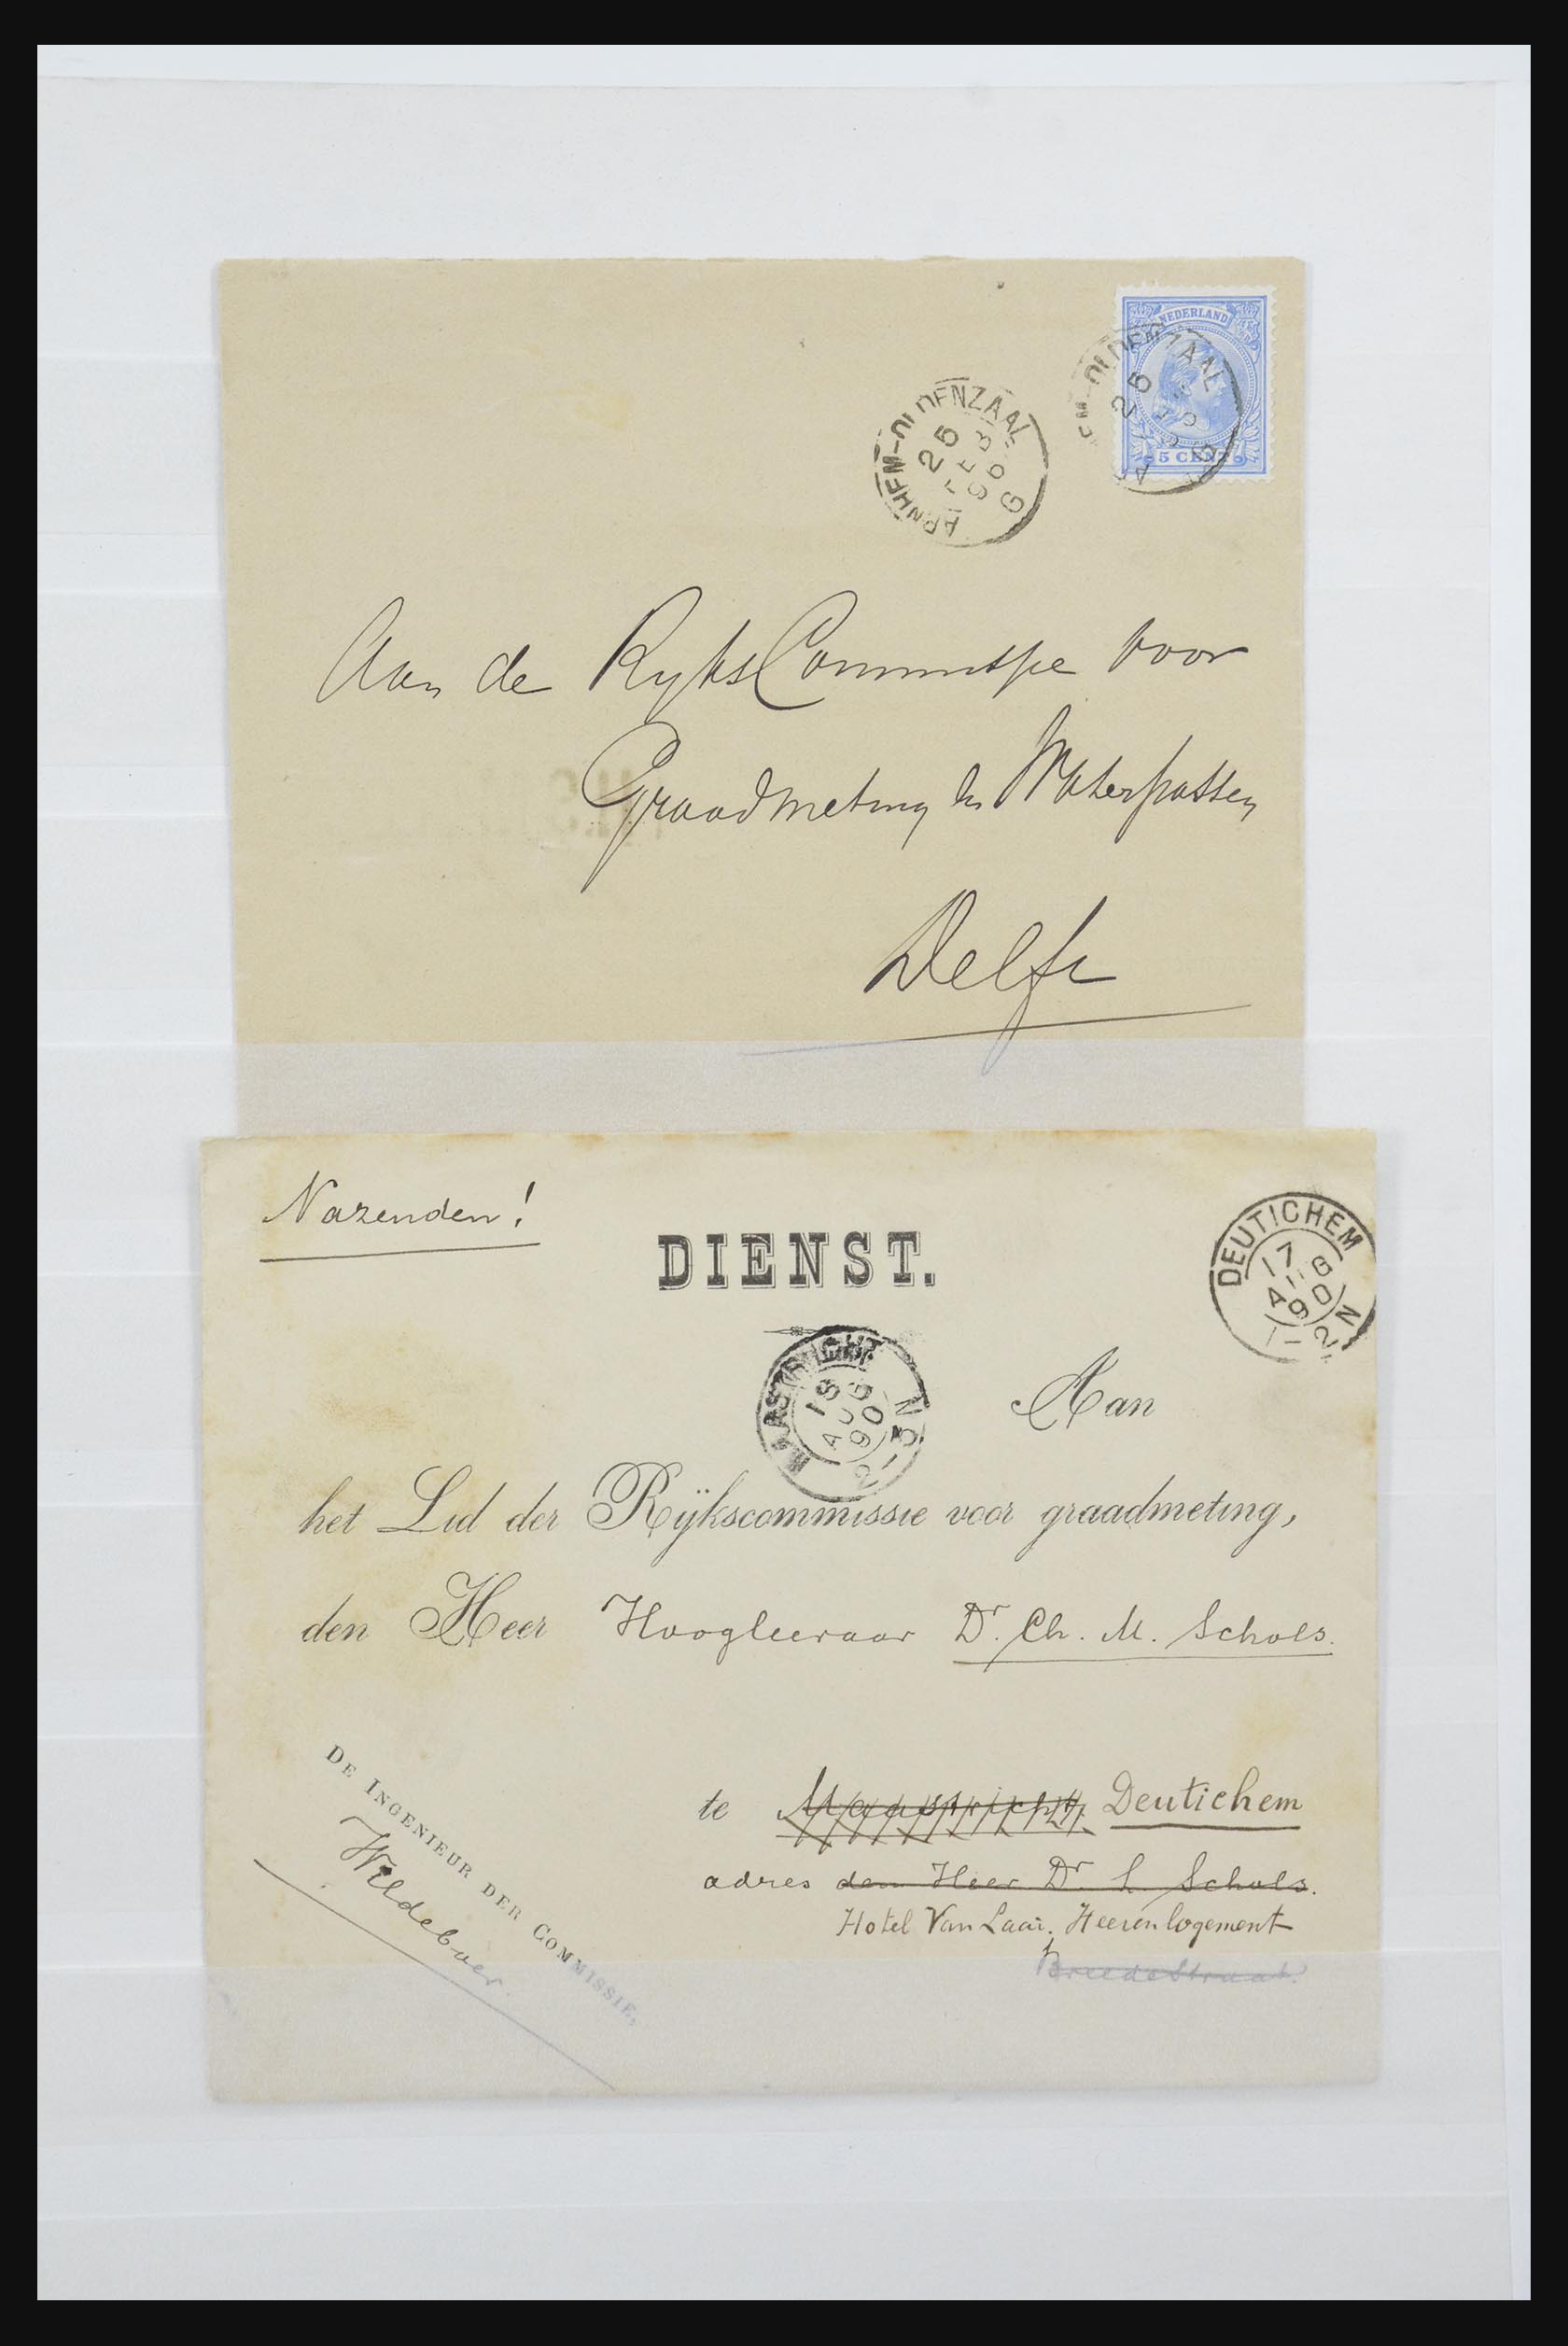 NEDERLAND
5 CENT
ARNHEM-OLDENZAAL
25 FEB 96
G
ARNHEM-OLDENZAAL
25
G
Aan de RyksCommissie voor
Graadmeting en Waterpassen
Delft
Nazenden!
DIENST.
DEUTICHEM
17 AUG 90
1-2N
MAASTRICHT
18 AUG 90
2-3N
Aan
het Lid der Rijkscommissie voor graadmeting,
den Heer Hoogleeraar Dr. Ch. M. Schols.
te Maastricht, Deutichem
adres den Heer Dr. L. Schols.
Hotel Van Laar, Heerenlogement
Breedestraat.
DE INGENIEUR DER COMMISSIE,
Wildeboer.